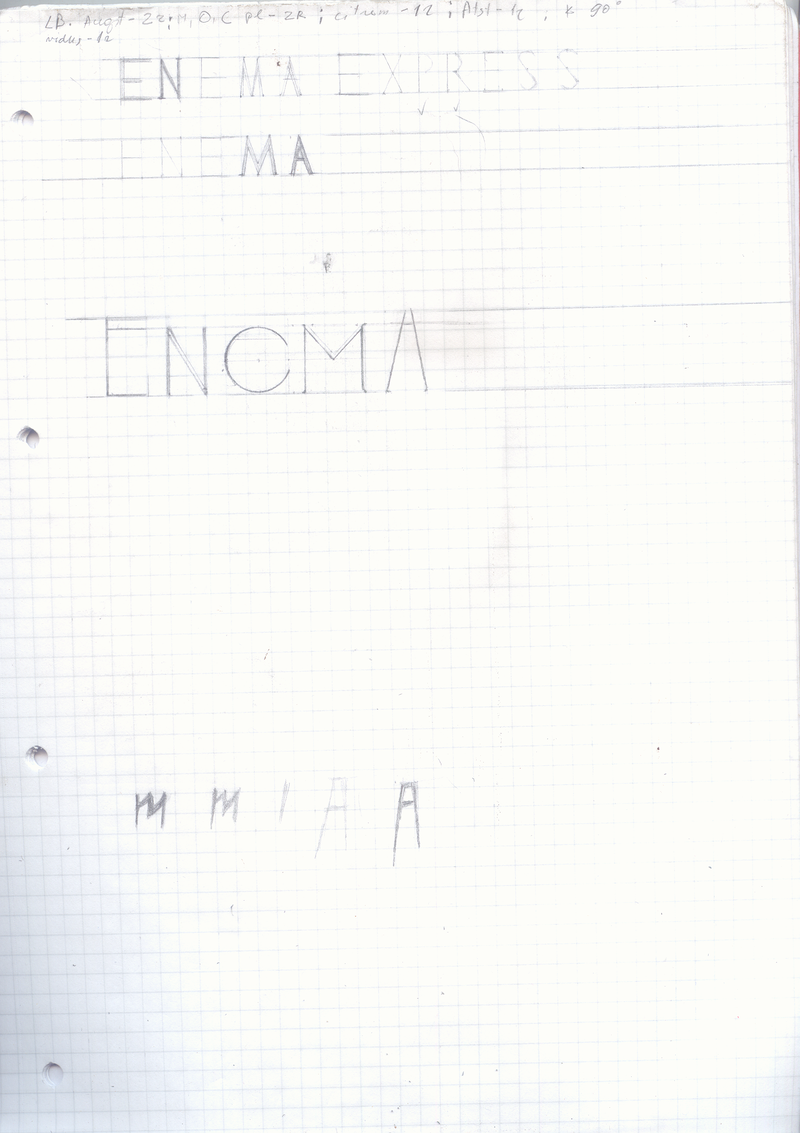 LB. Augst - 2R; M, O, C pl - 2R ; citiem - 12 ; Atst - ½ , K 90°
vidus - 12
ENEMA EXPRESS
ENEMA
ENCMA
m m I A A